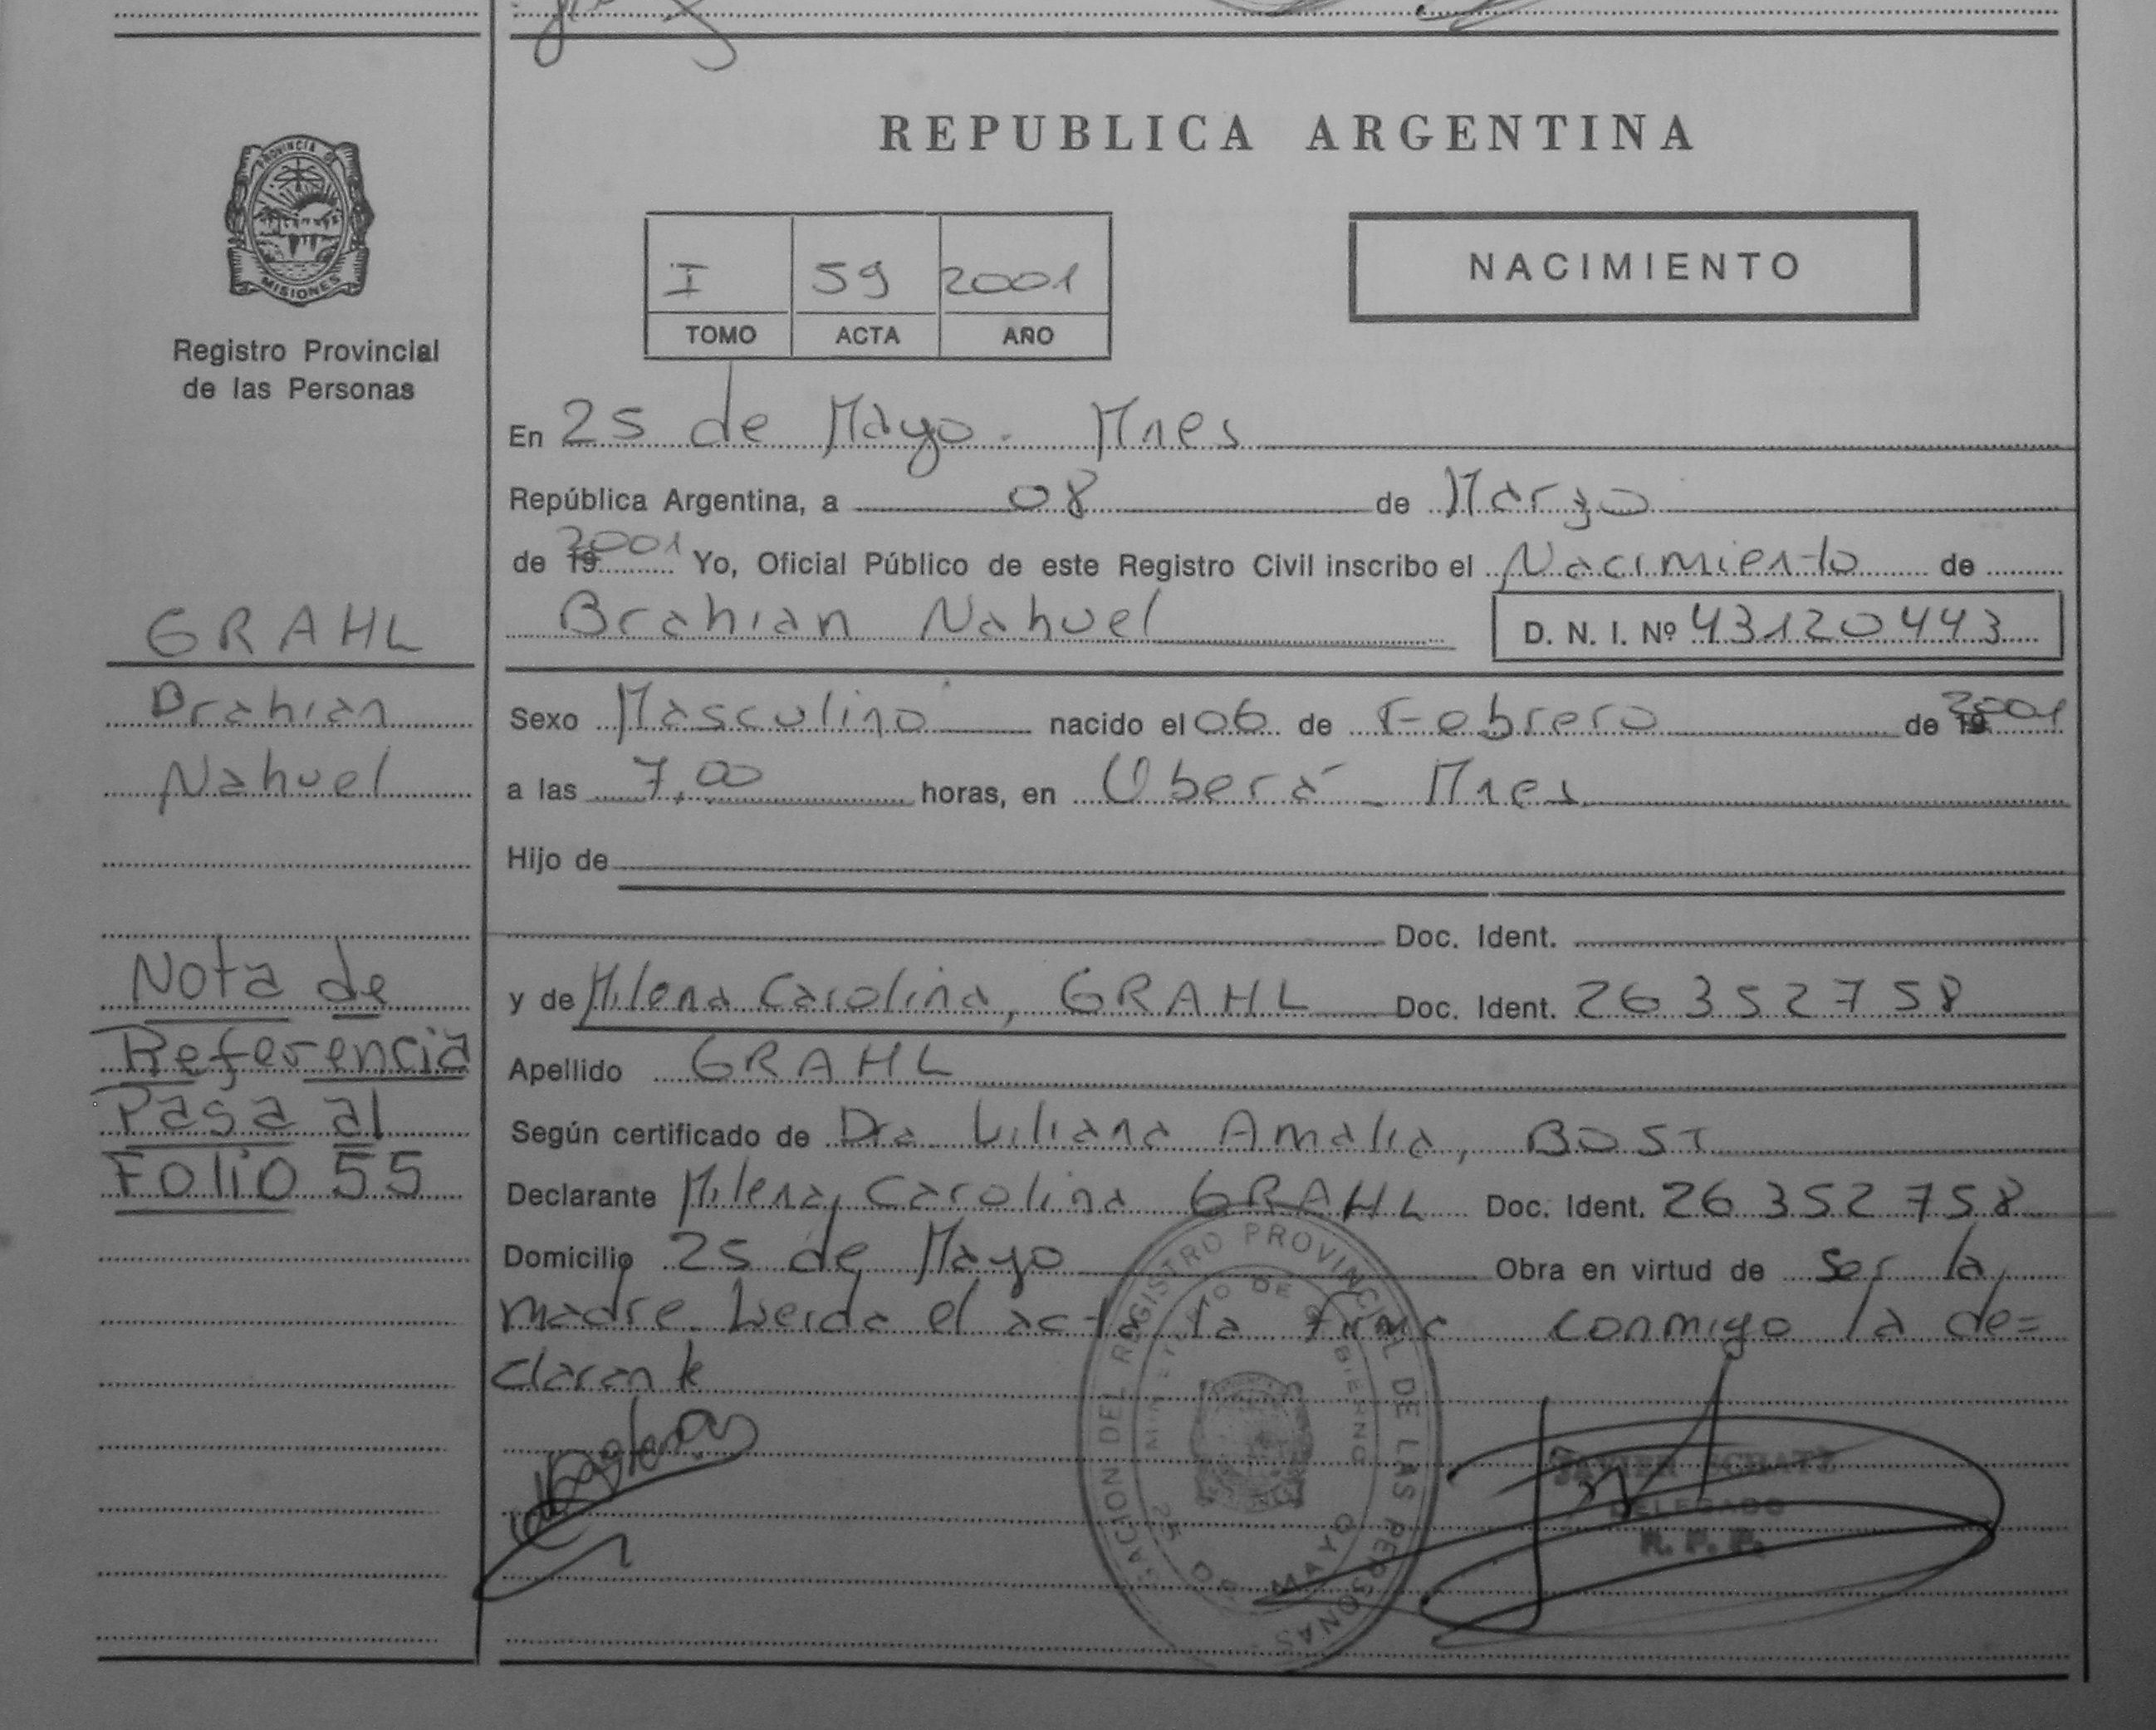 PROVINCIA DE
MISIONES
Registro Provincial
de las Personas
GRAHL
Brahian
Nahuel
Nota de
Referencia
Pasa al
Folio 55
REPUBLICA ARGENTINA
I 59 2001
TOMO ACTA AÑO
NACIMIENTO
En 25 de Mayo - Mnes
República Argentina, a 08 de Marzo
de 19 2001 Yo, Oficial Público de este Registro Civil inscribo el Nacimiento de
Brahian Nahuel D. N. I. Nº 43120443
Sexo Masculino nacido el 06 de Febrero de 19 2001
a las 7,00 horas, en Oberá - Mnes
Hijo de
Doc. Ident.
y de Milena Carolina, GRAHL Doc. Ident. 26 352 758
Apellido GRAHL
Según certificado de Dra Liliana Amalia, BOST
Declarante Milena, Carolina GRAHL Doc. Ident. 26 352 758
Domicilio 25 de Mayo Obra en virtud de ser la
madre. Leida el acta la firma conmigo la de=
clarante
REGISTRO PROVINCIAL DE LAS PERSONAS
MINISTERIO DE GOBIERNO
25 DE MAYO
JAVIER SCHATZ
DELEGADO
R. P. P.